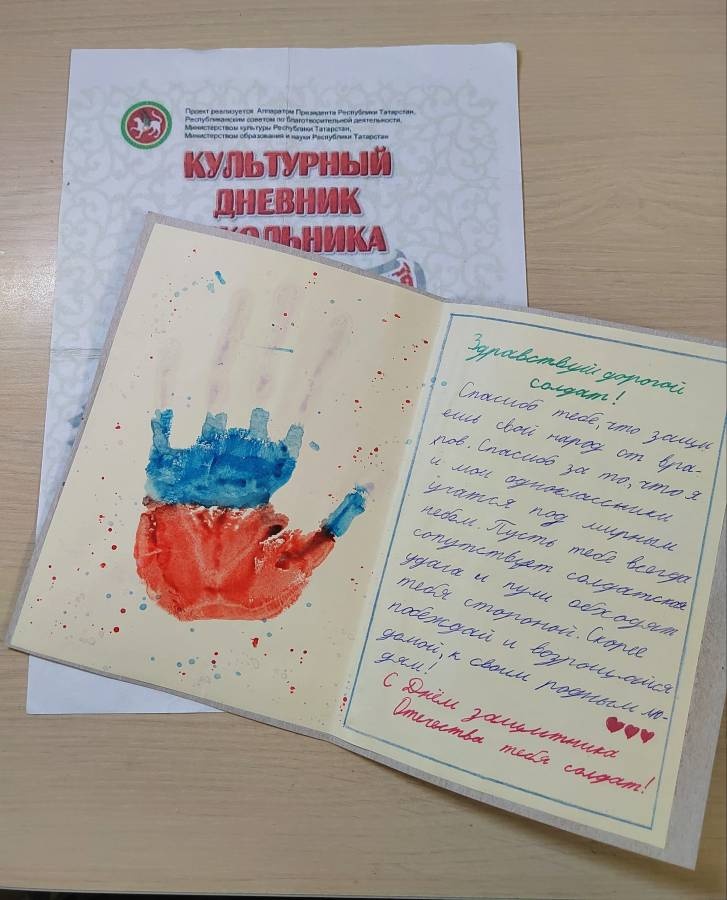 Проект реализуется Аппаратом Президента Республики Татарстан,
Республиканским советом по благотворительной деятельности,
Министерством культуры Республики Татарстан,
Министерством образования и науки Республики Татарстан
КУЛЬТУРНЫЙ
ДНЕВНИК
ШКОЛЬНИКА
Здравствуй дорогой
солдат!
Спасибо тебе, что защи
ешь свой народ от вра-
гов. Спасибо за то, что я
и мои одноклассники
учатся под мирным
небом. Пусть тебе всегда
сопутствует солдатская
удача и пули обходят
тебя стороной. Скорее
побеждай и возрощайся
домой, к своим родным лю-
дям!
С Днём защитника
Отечества тебя солдат!